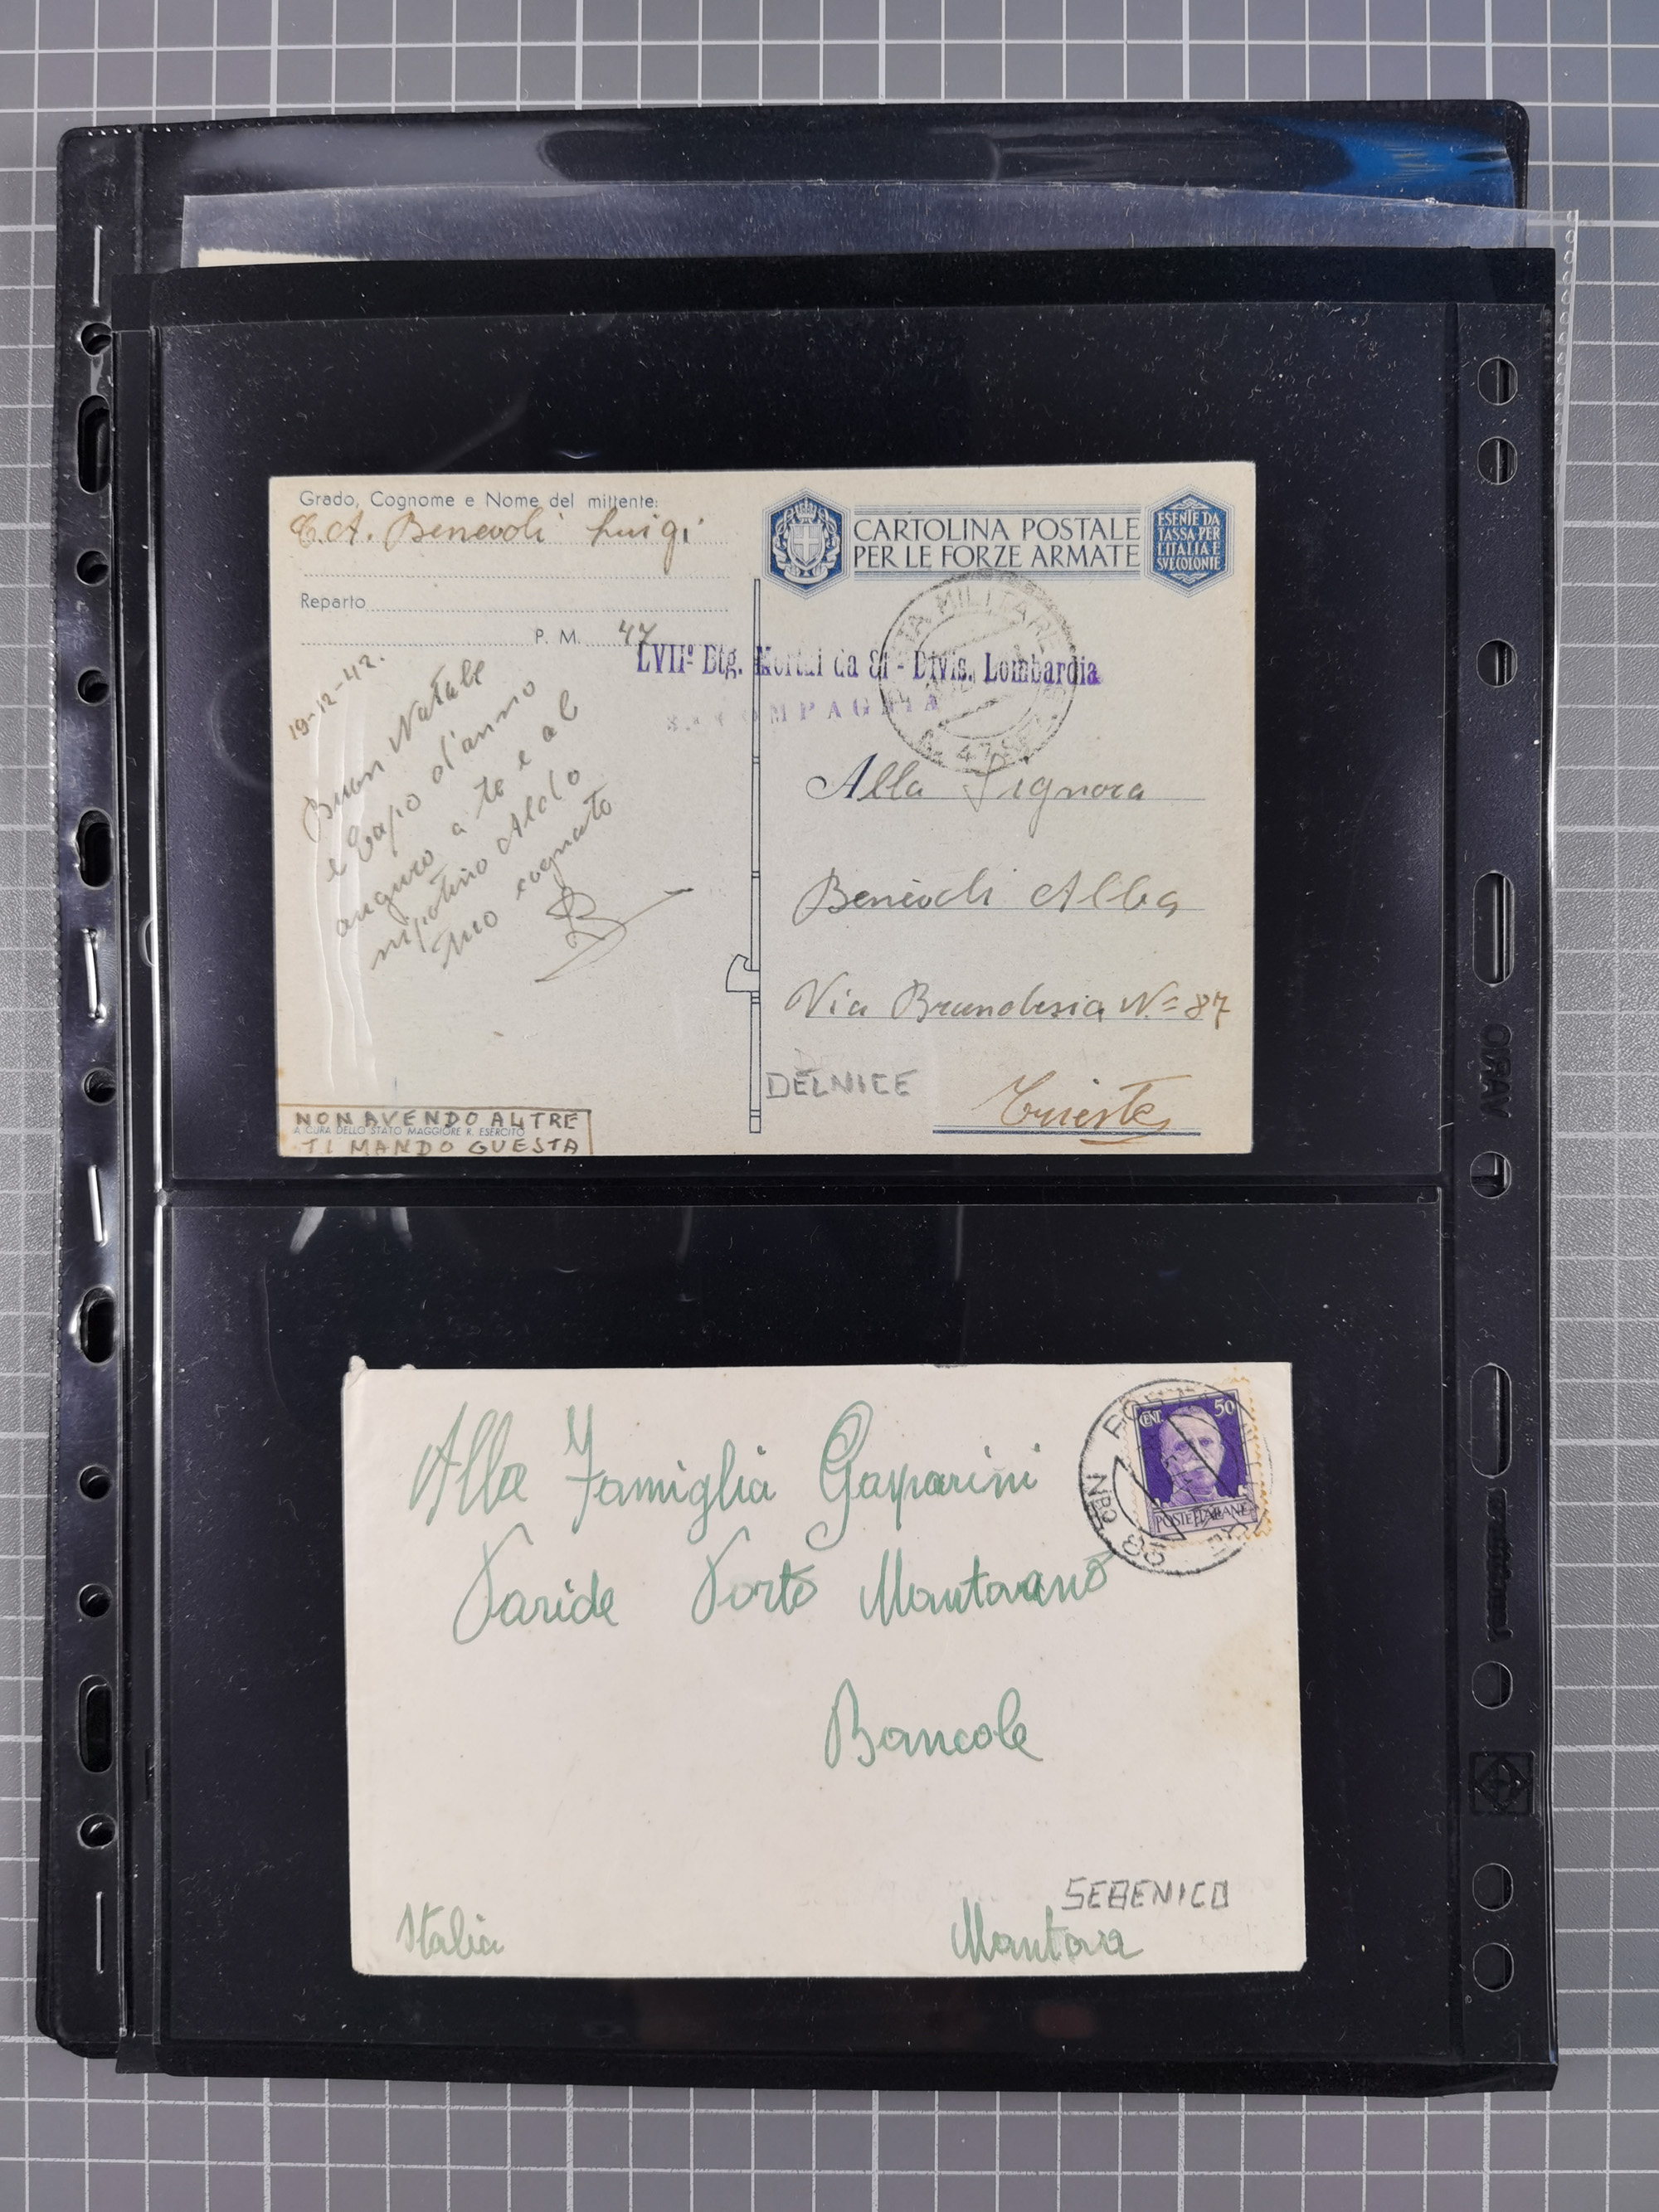 Grado, Cognome e Nome del mittente:
C.A. Benevoli Luigi
Reparto
P. M. 47
CARTOLINA POSTALE
PER LE FORZE ARMATE
ESENTE DA
TASSA PER
L'ITALIA E
SVE COLONIE
POSTA MILITARE
N. 47
LVIIº Btg. Mortai da 81 - Divis. Lombardia
COMPAGNIA
19-12-42.
Buon Natale
e Capo d'anno
auguro a te e al
nipotino Aldo
tuo cognato
B
Alla Signora
Benevoli Alba
Via N.= 87
DELNICE
Trieste
NON AVENDO ALTRE
A CURA DELLO STATO MAGGIORE R. ESERCITO
TI MANDO QUESTA
CENT. 50
POSTE ITALIANE
NRO 88
Alla Famiglia Gasparini
Paride Porto Mantovano
Bancole
SEBENICO
Italia
Mantova
VARIO